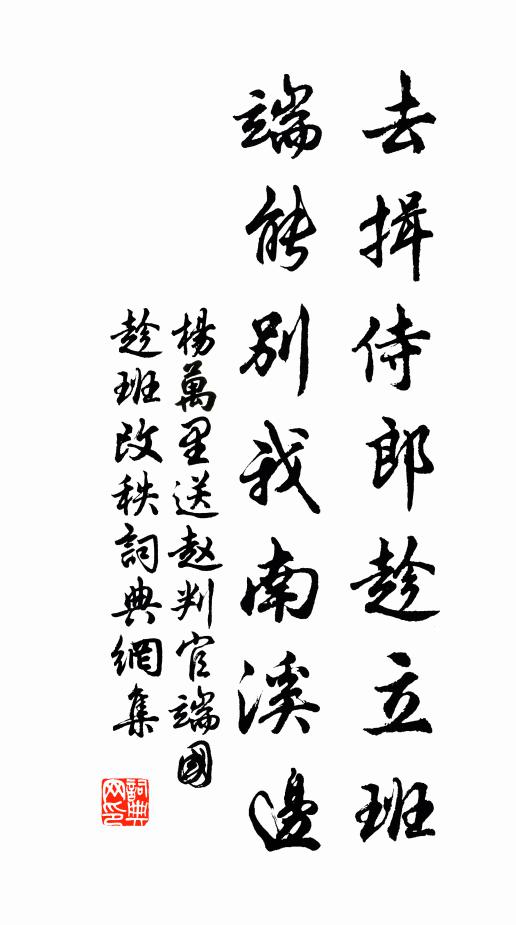 去揖侍郎趁立班
端能別我南溪邊
楊萬里送赵判官端國
趁班改秩詞典網集
詞典
网印